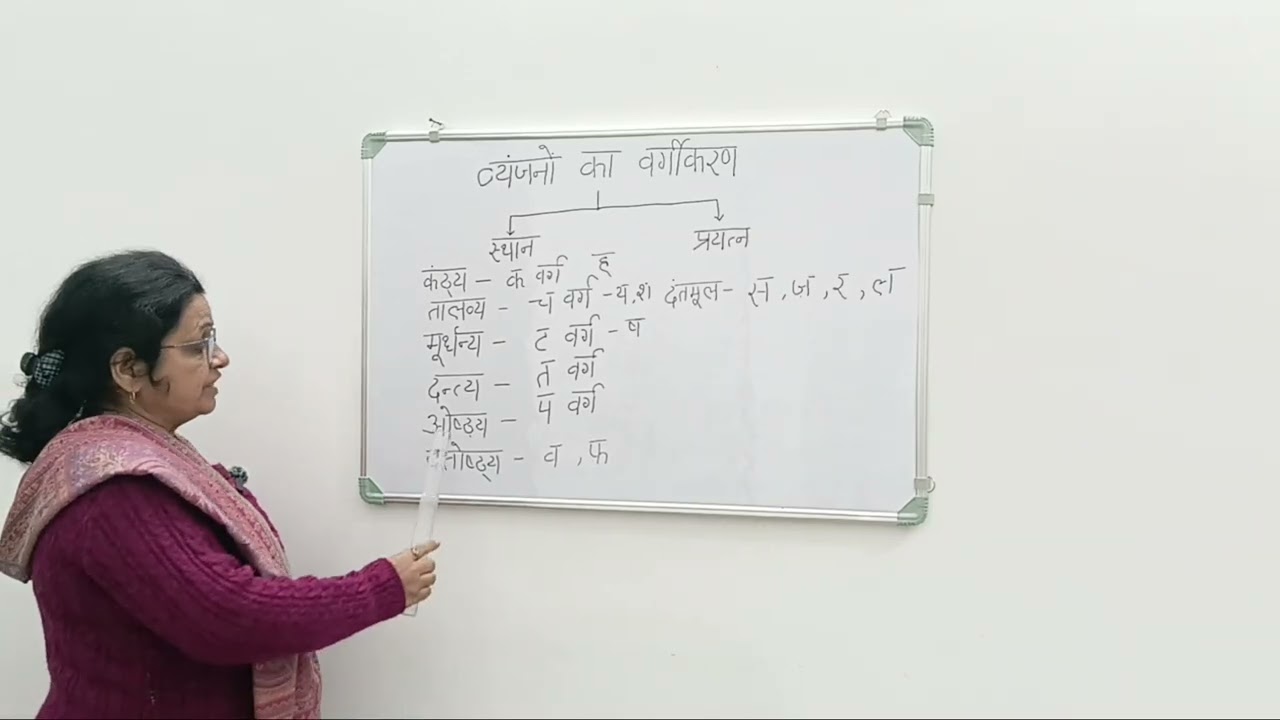 व्यंजनों का वर्गीकरण
स्थान प्रयत्न
कंठ्य - क वर्ग ह्
तालव्य - च वर्ग - य, श दंतमूल - स, ज, र, ल
मूर्धन्य - ट वर्ग - ष
दन्त्य - त वर्ग
ओष्ठ्य - प वर्ग
- व, फ